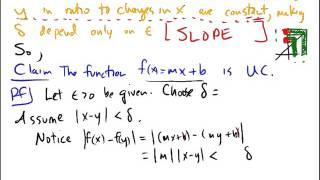 y in ratio to changes in x are constant, making
δ depend only on ε [SLOPE]
So,
Claim The function f(x)=mx+b is UC.
Pf) Let ε>0 be given. Choose δ=
Assume |x-y|<δ.
Notice |f(x)-f(y)|=|(mx+b)-(my+b)|
=|m||x-y|< δ